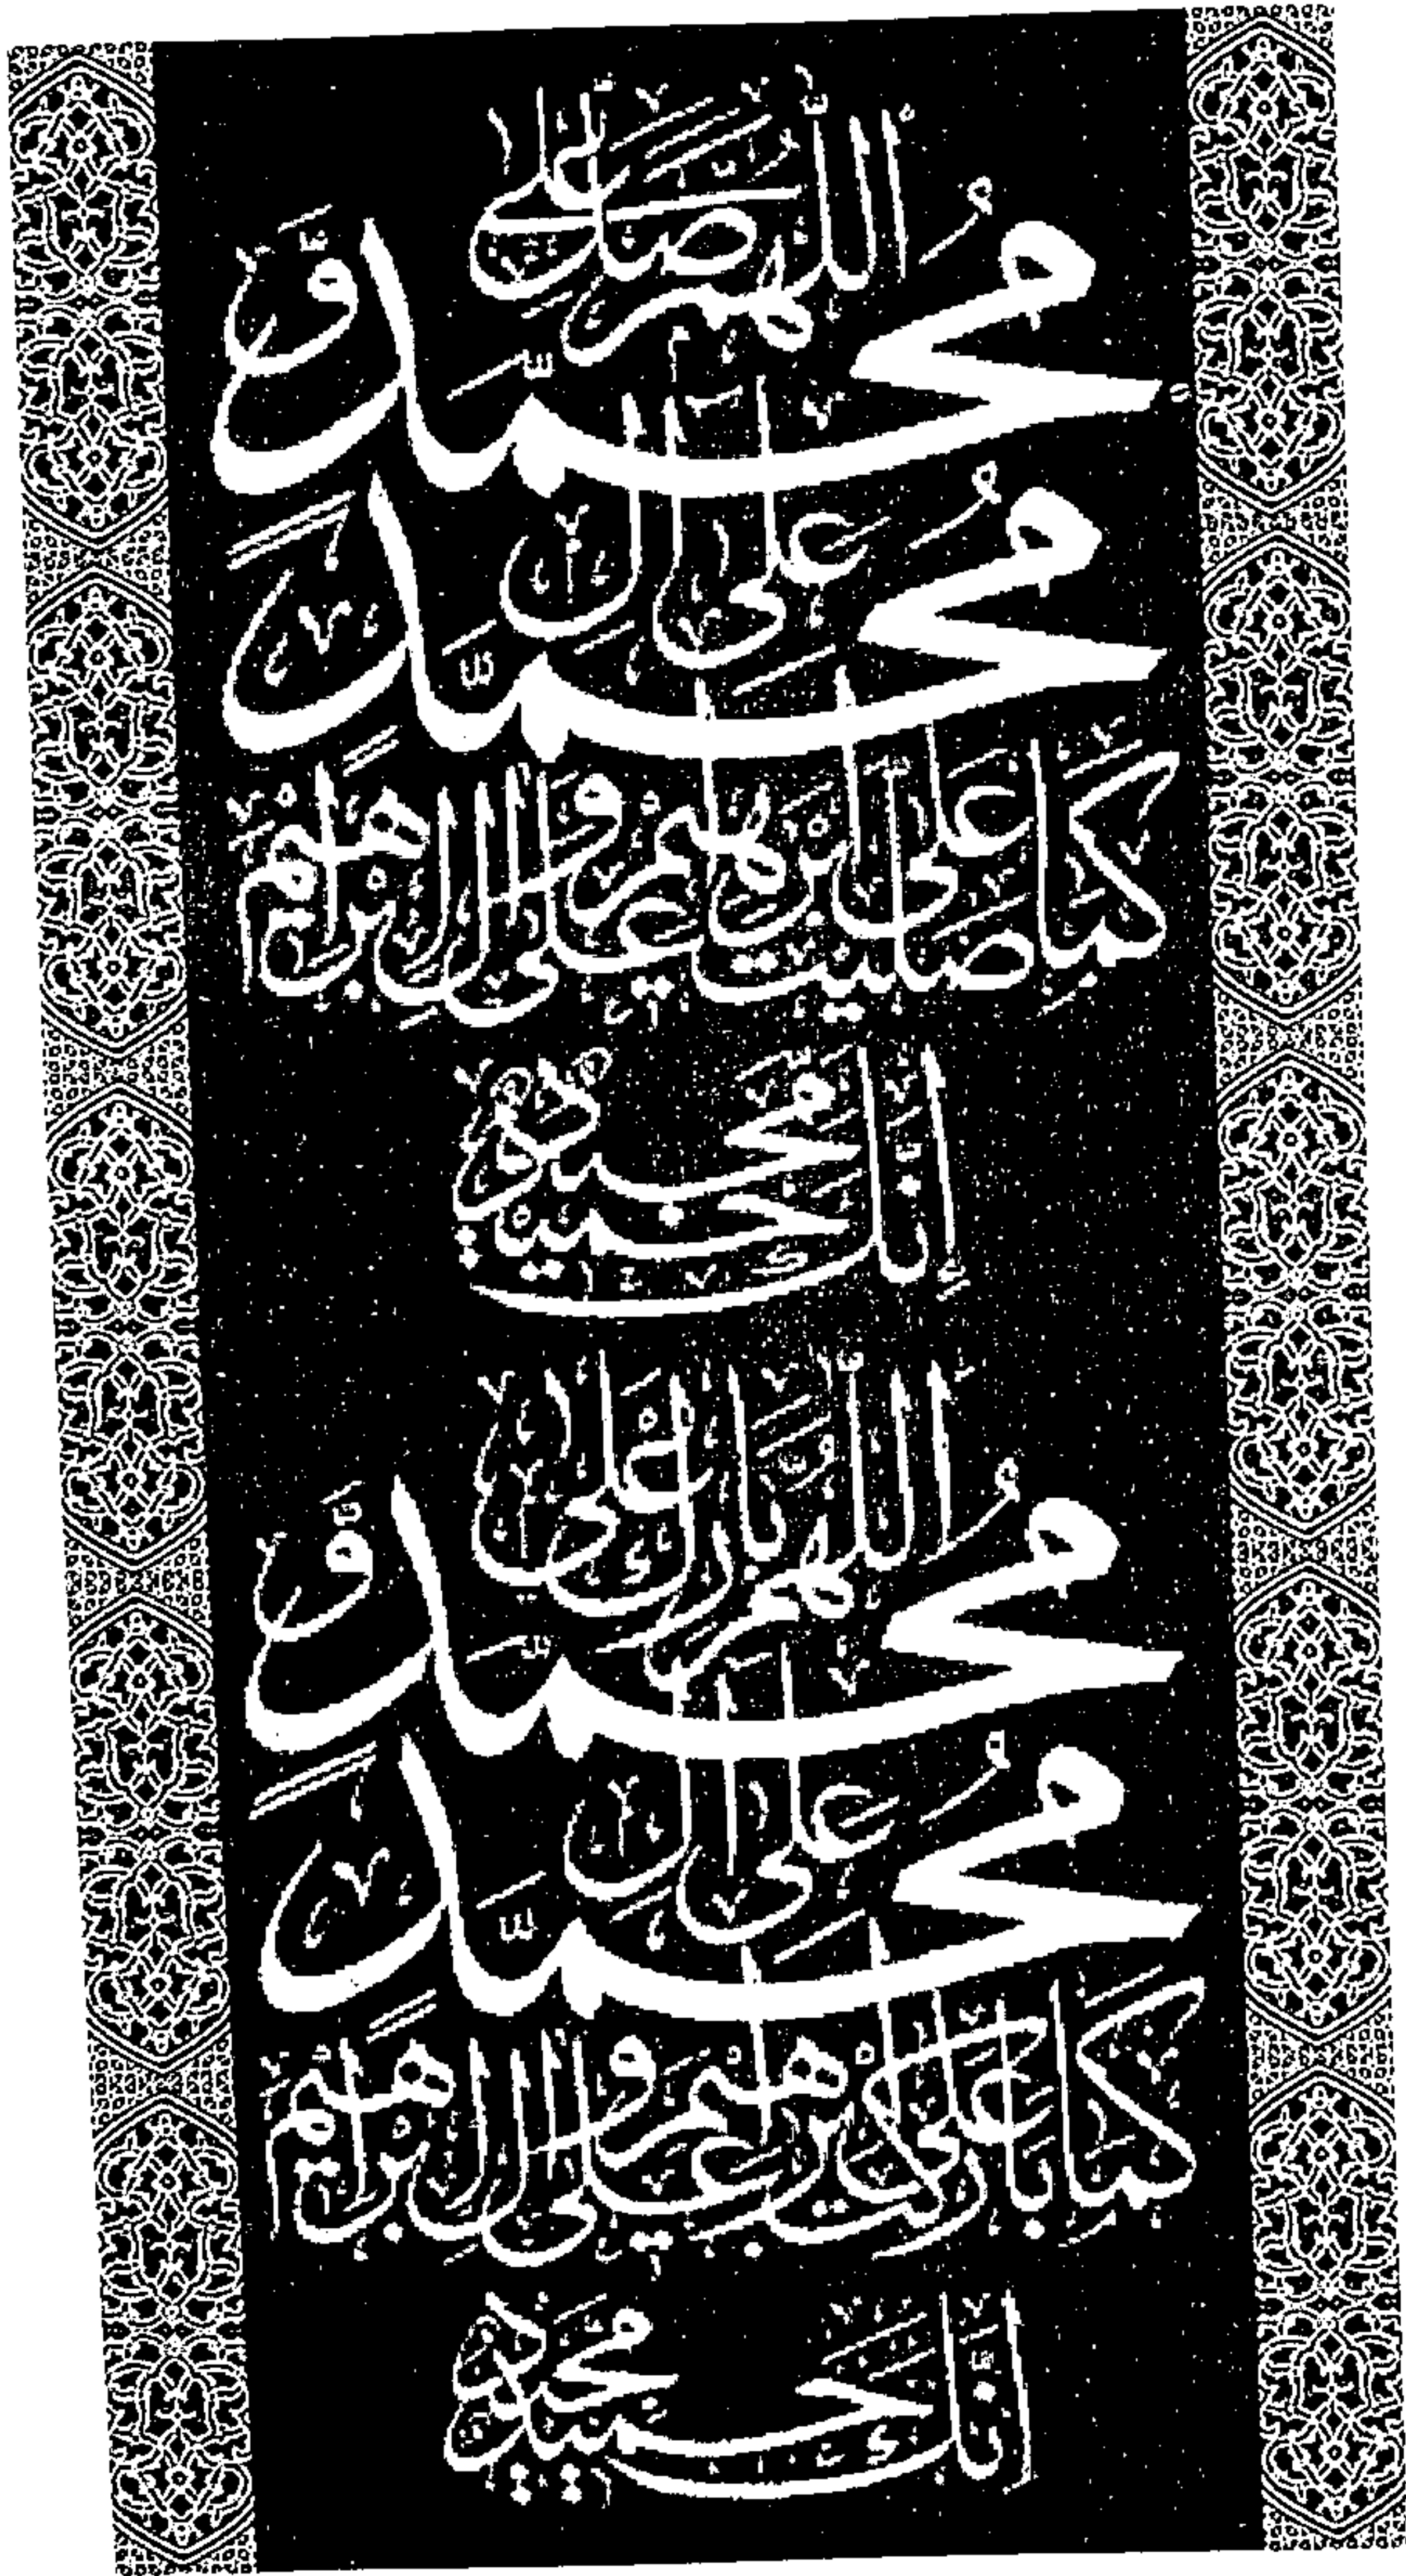 اللهم صل على
محمد و
على آل
محمد
كما صليت على ابرهيم و على آل ابراهيم
انك حميد مجيد
اللهم بارك على
محمد و
على آل
محمد
كما باركت على ابرهيم و على آل ابراهيم
انك حميد مجيد